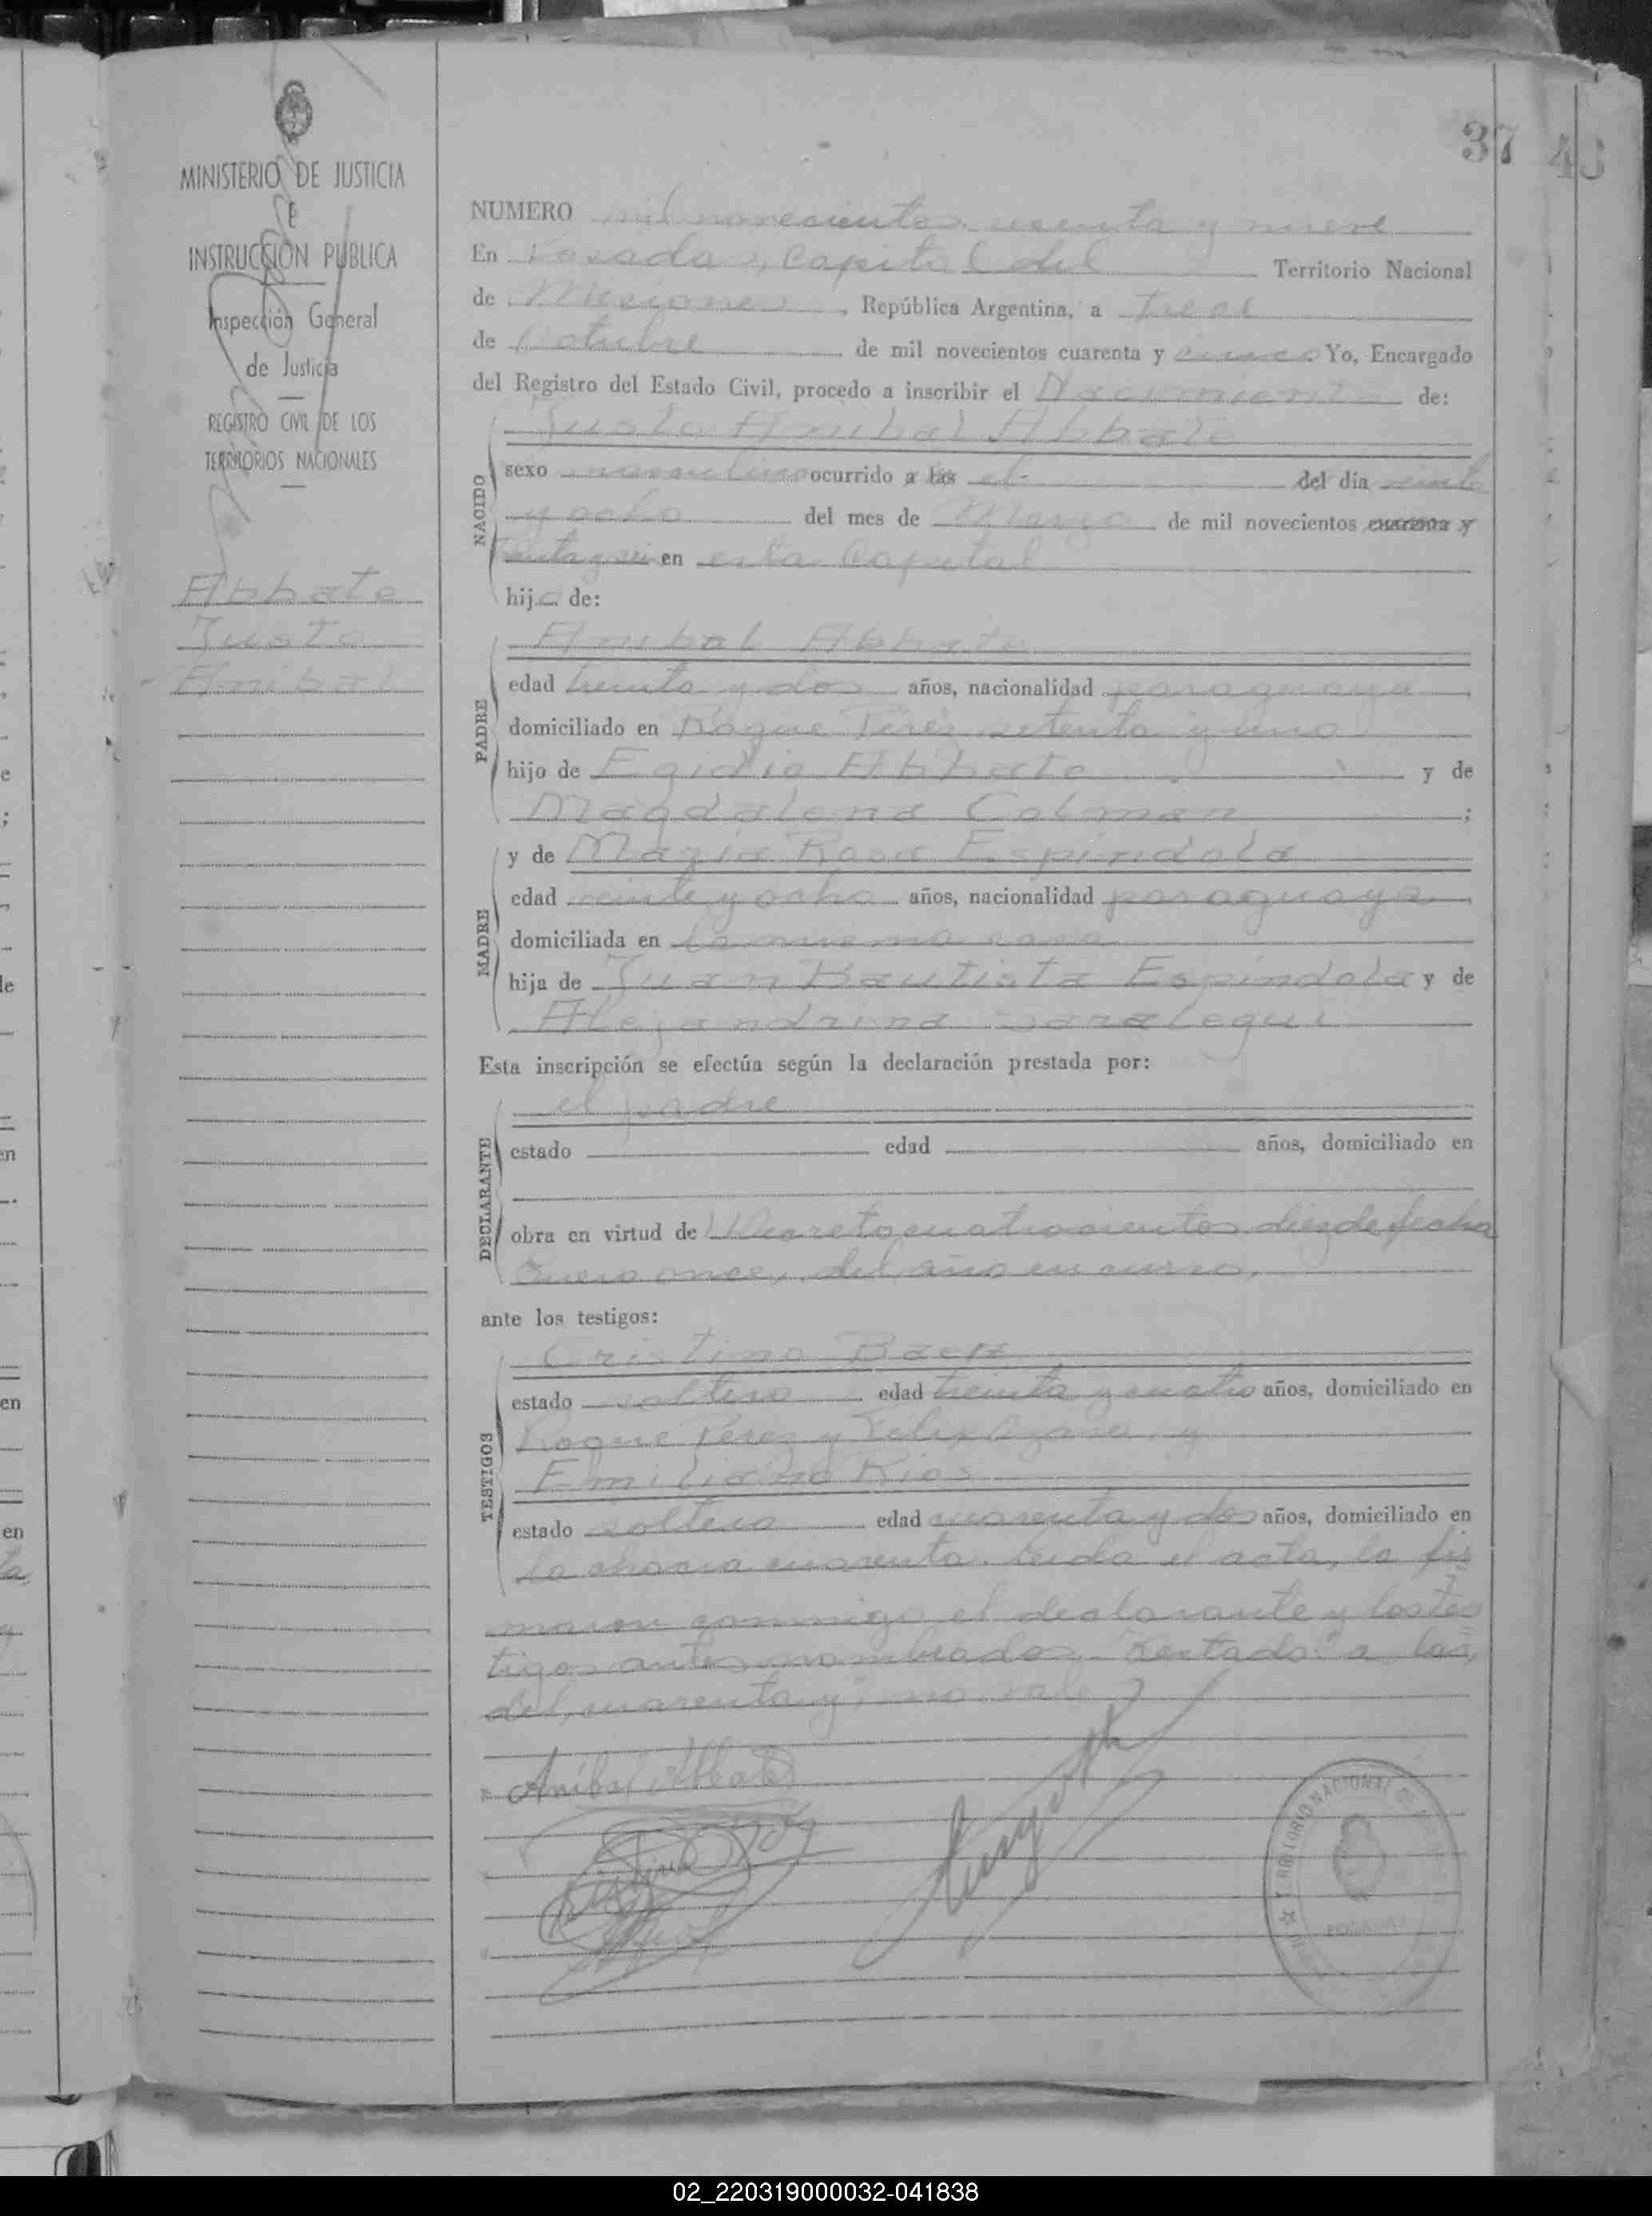 37 43
MINISTERIO DE JUSTICIA
E
INSTRUCCIÓN PUBLICA
Inspección General
de Justicia
REGISTRO CIVIL DE LOS
TERRITORIOS NACIONALES
Abbate
Justo
Anibal
NUMERO mil novecientos y nueve
En Posadas, Capital del Territorio Nacional
de Misiones, República Argentina, a tres
de Octubre de mil novecientos cuarenta y cinco. Yo, Encargado
del Registro del Estado Civil, procedo a inscribir el Nacimiento de:
NACIDO
Justo Anibal Abbate
sexo masculino ocurrido a las el del día veinte
y ocho del mes de Marzo de mil novecientos cuarenta y
treinta y seis en esta Capital
hijo de:
PADRE
Anibal Abbate
edad treinta y dos años, nacionalidad paraguaya
domiciliado en Roque Perez setenta y uno
hijo de Egidio Abbate y de
Magdalena Colman;
MADRE
y de Maria Rosa Espindola
edad veinte y ocho años, nacionalidad paraguaya
domiciliada en la misma casa
hija de Juan Bautista Espindola y de
Alejandrina Saralegui
Esta inscripción se efectúa según la declaración prestada por:
DECLARANTE
el padre
estado edad años, domiciliado en
obra en virtud de Decreto cuatrocientos diez de fecha
Enero once, del año en curso,
ante los testigos:
TESTIGOS
Cristino Baez
estado soltero edad treinta y cuatro años, domiciliado en
Roque Perez y Felix Azara, y
Emiliano Rios
estado soltero edad cuarenta y dos años, domiciliado en
la chacra cuarenta. Leida el acta, la fir
maron conmigo el declarante y los tes
tigos antes nombrados. Testado: a las,
del, cuarenta y; no vale
Anibal Abbate
TERRITORIO NACIONAL DE
POSADAS
02_220319000032-041838